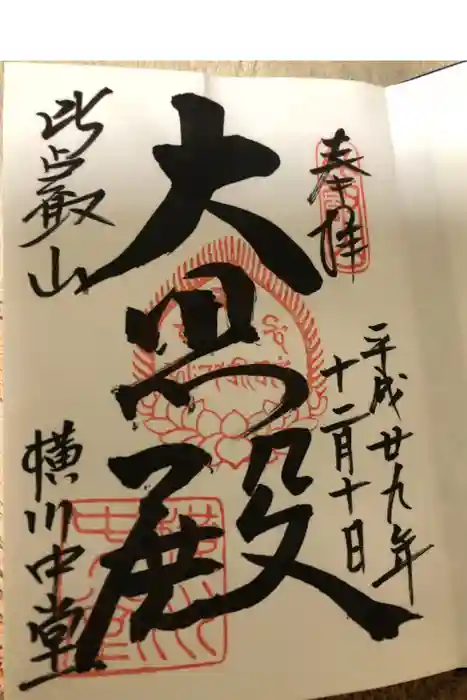 奉拝
平成廿九年
十二月十日
大悲殿
比叡山
横川中堂